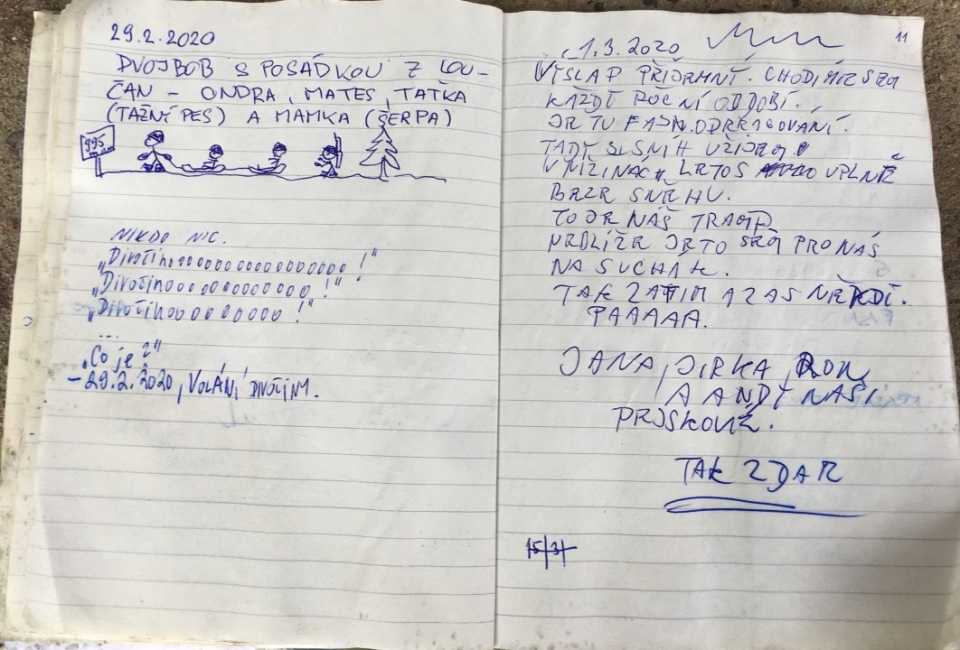 29.2.2020
DVOJBOB S POSÁDKOU Z LOU-
ČAN – ONDRA, MATES, TAŤKA
(TAŽNÍ PES) A MAMKA (ŠERPA)
995
NIKDO NIC.
„Divočinooooooooooooooooo!"
„Divočinoooooooooooo!"
„Divočinooooooooo!"
...
„Co je?"
– 29.2.2020, VOLÁNÍ DIVOČINY.
11
1.3.2020
VÝŠLAP PŘÍJEMNÝ. CHODÍME SEM
KAŽDÉ ROČNÍ OBDOBÍ.
JE TU FAJN ODREAGOVÁNÍ.
TADY SE SNÍH UŽIJEM
V NÍŽINÁCH LETOS ÚPLNĚ
BEZE SNĚHU.
TO JE NÁŠ
NEDLÍŽE JE TO SEM PRO NÁS
NA SUCHÁK.
TAK ZATÍM A ZAS NĚKDY.
PAAAAA.
JANA, JIRKA, RON
A ANDY NAŠI
PEJSKOVÉ.
TAK ZDAR
15/3